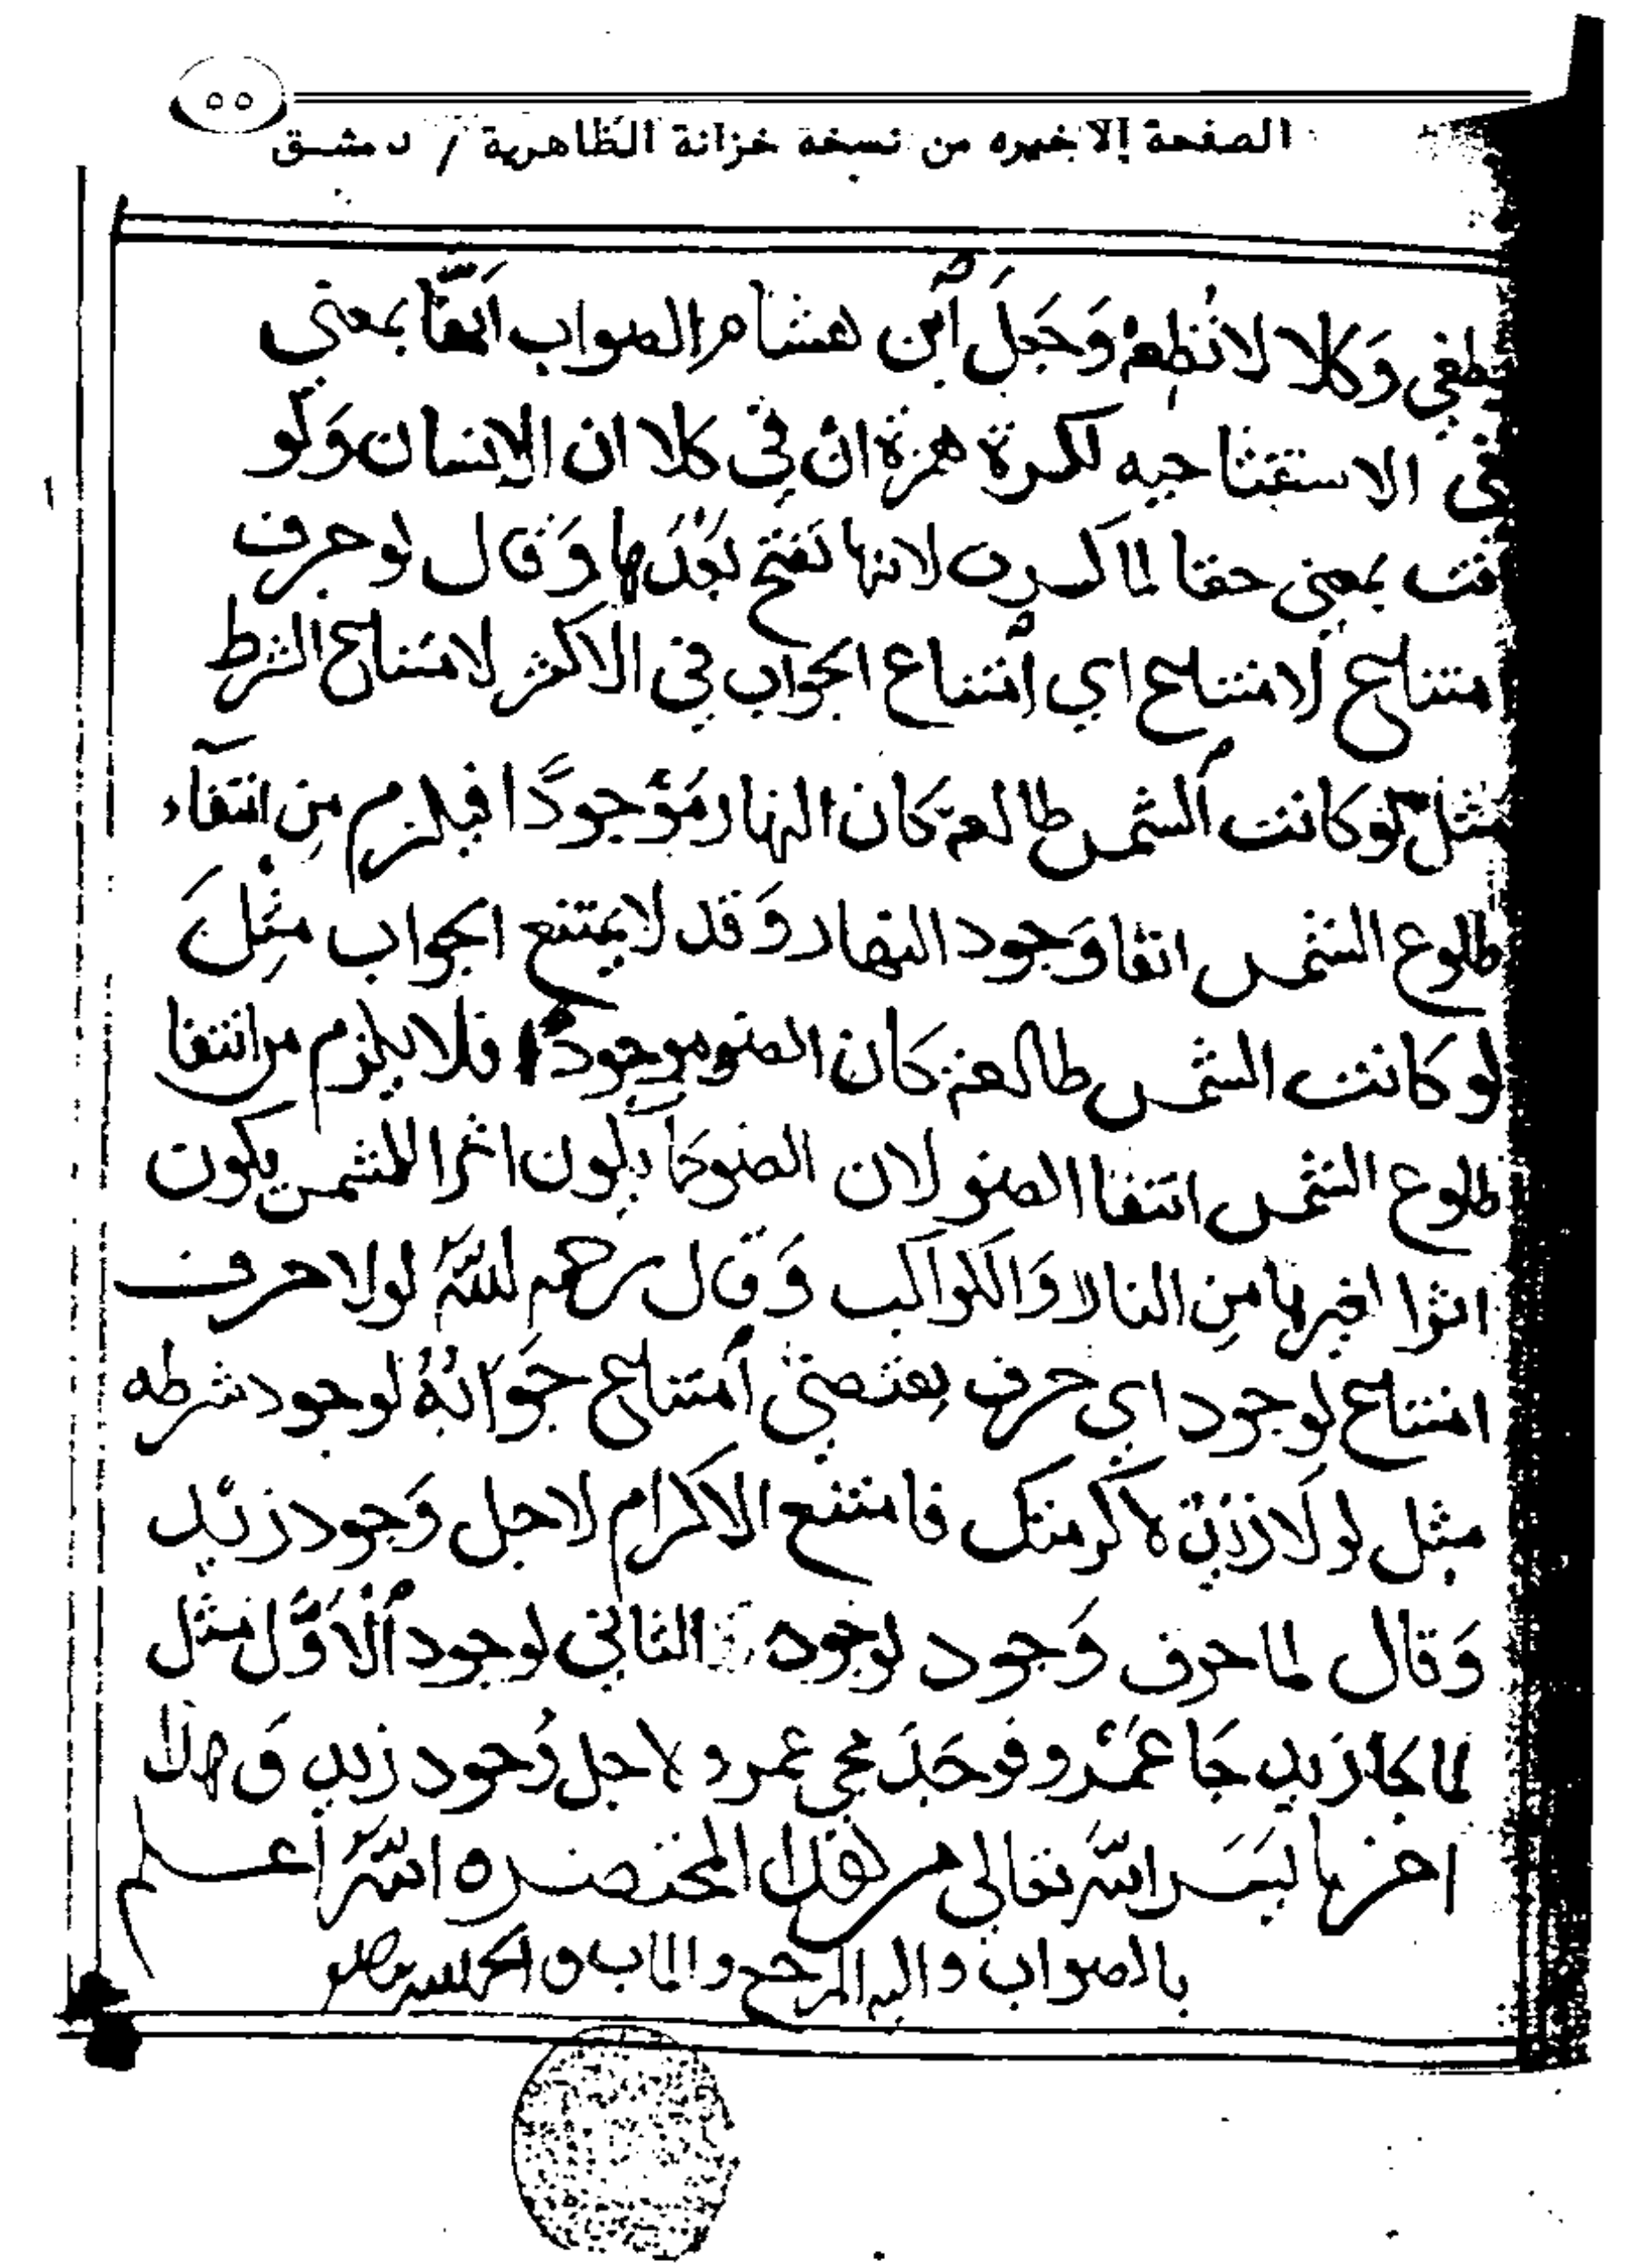 ٥٥
الصفحة الاخيره من نسخة خزانة الظاهرية / دمشق
يطغى وَكلا لا تُطِعْهُ وَجَعَلَ ابن هشام الصواب انها بمعنى
الاستفتاحيه لكسرة همزة ان في كلا ان الانسان وَلَو
بمعنى حقا لما كسرت لانها تفتح بَعْدَها وَقال لو حرف
امتناع لامتناع اي امتناع الجواب في الاكثر لامتناع الشرط
مثل لو كانت الشمس طالعة كان النهار مَوْجودًا فيلزم مِن انتفآء
طلوع الشمس انتفا وَجود النهار وَقد لا يمتنع الجواب مِثلَ
لو كانت الشمس طالعة كان الضو موجودًا فلا يلزم من انتفا
طلوع الشمس انتفا الضو لان الضو كما يكون اثرا للشمس يكون
اثرا لغيرها مِن النار وَالكواكب وَقال رحمه اللهُ لولا حرف
امتناع لوجود اي حرف يقتضي امتناع جَوَابُهُ لوجود شرطه
مثل لولا زيد لاكرمتك فامتنع الاكرام لاجل وَجود زيد
وَقال لما حرف وَجود لوجود الثاني لوجود الاوَّل مثل
لما جا زيد جَا عَمْرو فوجَدَ مجي عمرو لاجل وُجود زيد وَهذا
اخر ما يَسَر الله تعالى من هذا المختصر واللهُ اعلم
بالصواب واليه المرجع والماب والحمد لله